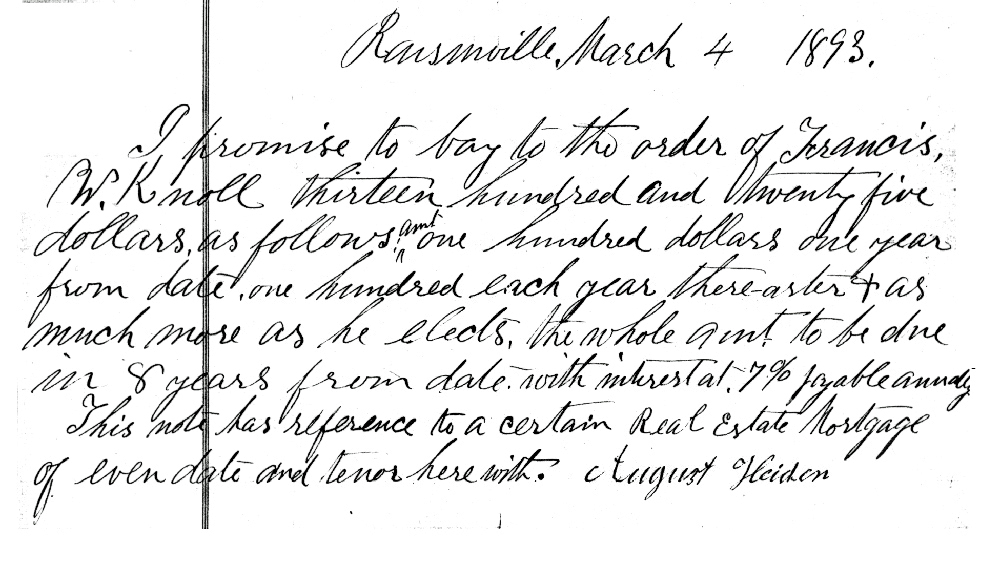 Raisinville, March 4 1893.
I promise to bay to the order of Francis,
W. Knoll thirteen hundred and twenty five
dollars, as follows, amt one hundred dollars one year
from date, one hundred each year there-arter & as
much more as he elects, the whole amt to be due
in 8 years from date. with interest at 7% payable annuly
This note has reference to a certain Real Estate Mortgage
of even date and tenor here with. August